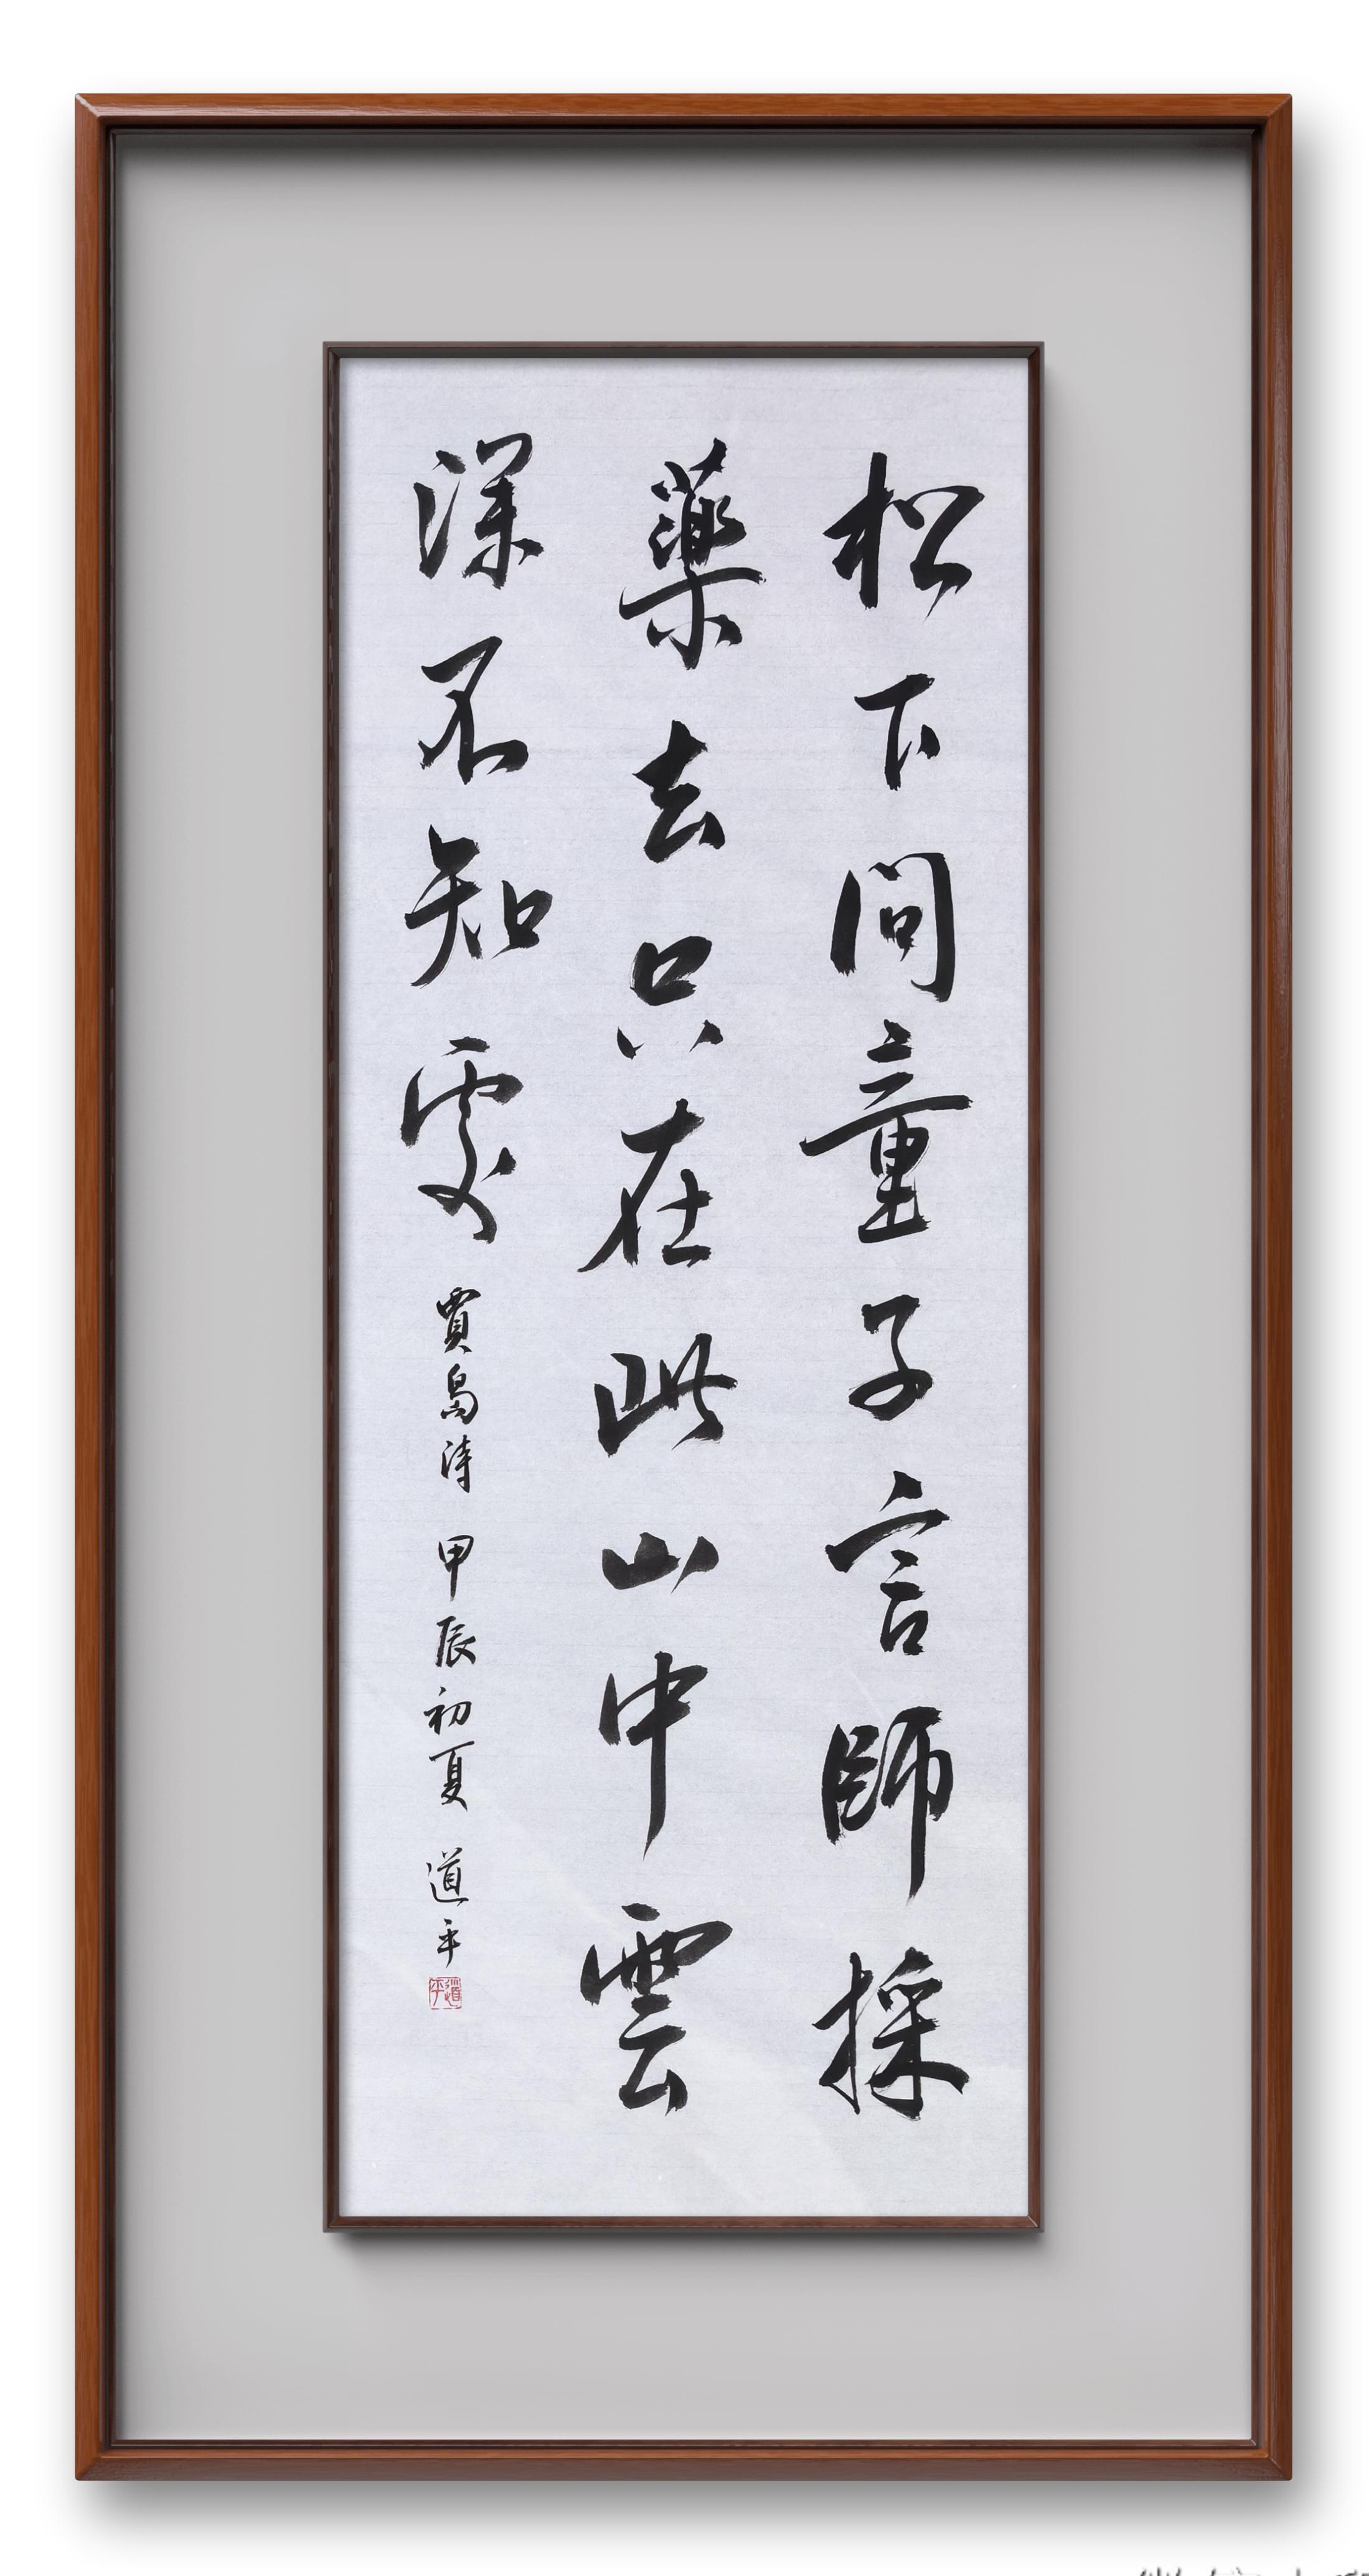 松下問童子言師採
藥去只在此山中雲
深不知處 賈島詩 甲辰初夏 道平
道平